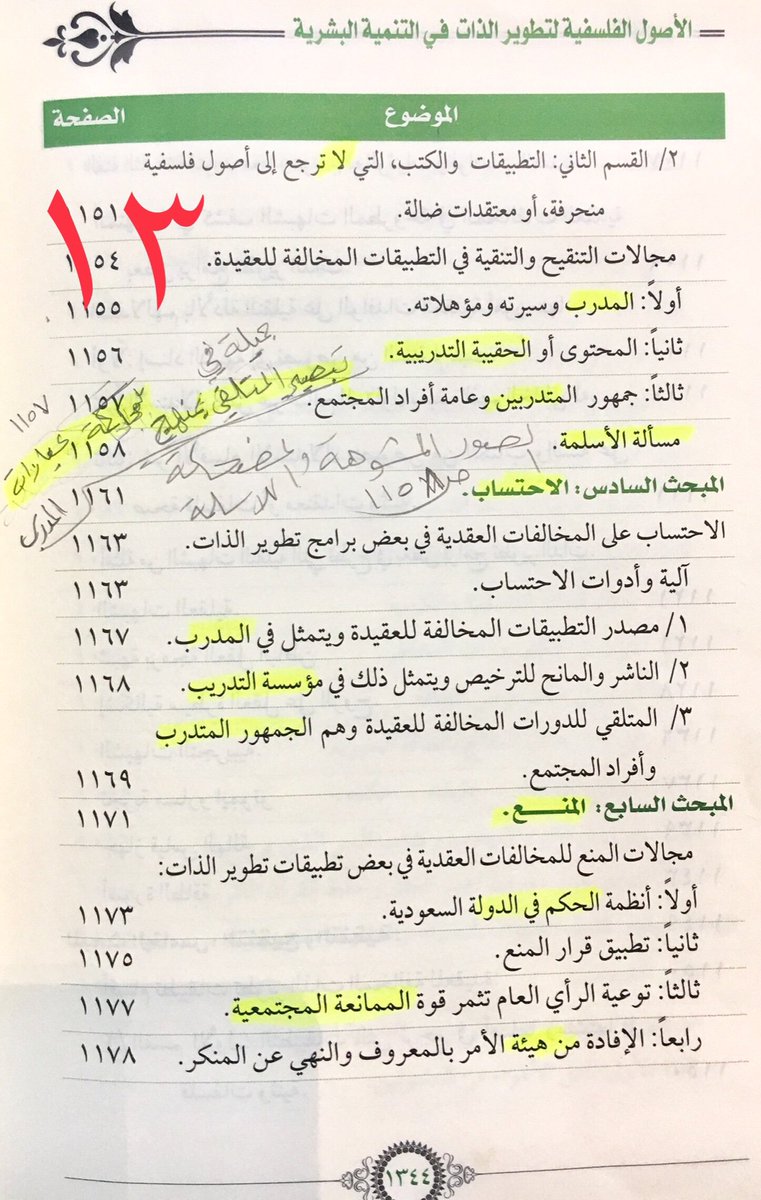 الأصول الفلسفية لتطوير الذات في التنمية البشرية
الموضوع الصفحة
٢/ القسم الثاني: التطبيقات والكتب، التي لا ترجع إلى أصول فلسفية
منحرفة، أو معتقدات ضالة. ١١٥١
١٣
مجالات التنقيح والتنقية في التطبيقات المخالفة للعقيدة. ١١٥٤
أولاً: المدرب وسيرته ومؤهلاته. ١١٥٥
ثانياً: المحتوى أو الحقيبة التدريبية. ١١٥٦
ثالثاً: جمهور المتدربين وعامة أفراد المجتمع. ١١٥٧
جميلة في
تبصير المتلقي بمنهج
١١٥٧
مسألة الأسلمة. ١١٥٨
الصور المشوهة والمضحكة
للأسلمة
المبحث السادس: الاحتساب. ١١٦١
الاحتساب على المخالفات العقدية في بعض برامج تطوير الذات. ١١٦٣
آلية وأدوات الاحتساب. ١١٦٣
١/ مصدر التطبيقات المخالفة للعقيدة ويتمثل في المدرب. ١١٦٧
٢/ الناشر والمانح للترخيص ويتمثل ذلك في مؤسسة التدريب. ١١٦٨
٣/ المتلقي للدورات المخالفة للعقيدة وهم الجمهور المتدرب
وأفراد المجتمع. ١١٦٩
المبحث السابع: المنـــع. ١١٧١
مجالات المنع للمخالفات العقدية في بعض تطبيقات تطوير الذات:
أولاً: أنظمة الحكم في الدولة السعودية. ١١٧٣
ثانياً: تطبيق قرار المنع. ١١٧٥
ثالثاً: توعية الرأي العام تثمر قوة الممانعة المجتمعية. ١١٧٧
رابعاً: الإفادة من هيئة الأمر بالمعروف والنهي عن المنكر. ١١٧٨
١٣٤٤